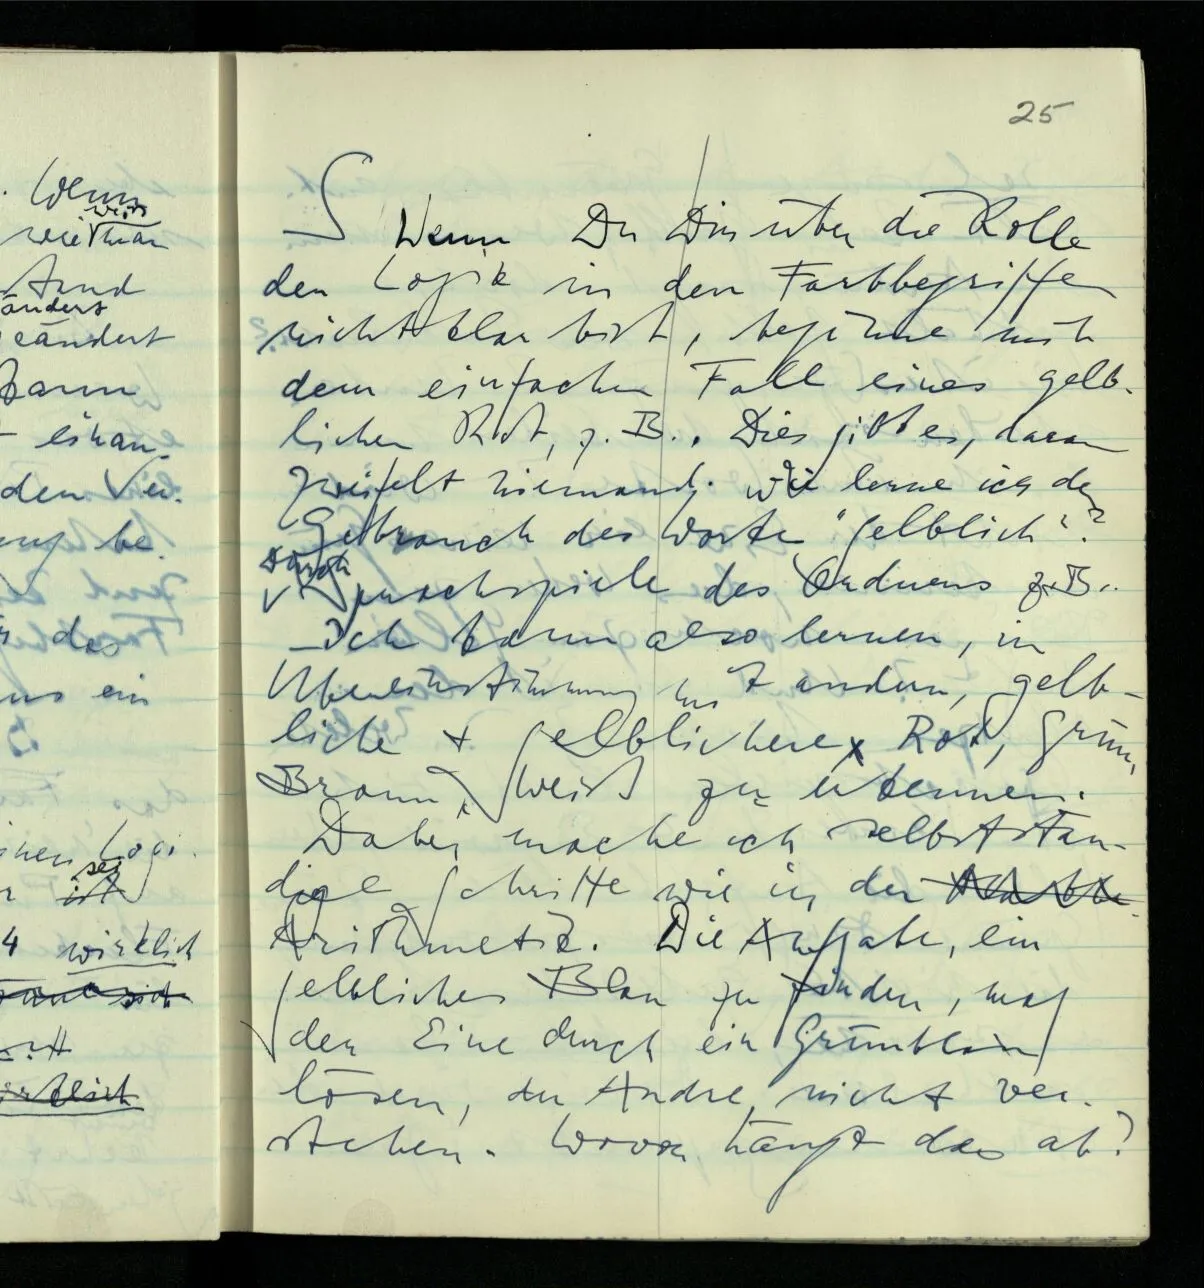 . Wenn
weiß
wie man
änders
geändert
kann
einan-
den Ver-
be
das
ein
Logi-
sei
ist
4 wirklich
wirklich
25
S Wenn Du Dir über die Rolle
der Logik in den Farbbegriffen
nicht klar bist, beginne mit
dem einfachen Fall eines gelb-
lichen Rot, z.B.. Dies gibt es, daran
zweifelt niemand. Wie lerne ich den
Gebrauch des Worts "gelblich"?
Durch
Sprachspiele des Ordnens z.B..
Ich kann also lernen, in
Übereinstimmung mit andern, gelb-
liche + gelblichere Rot, Grün,
Braun, Weiß zu erkennen.
Dabei mache ich selbststän-
dige Schritte wie in der
Arithmetik. Die Aufgabe, ein
gelbliches Blau zu finden, mag
der Eine durch ein Grünblau
lösen, der Andre nicht ver-
stehen. Wovon hängt das ab?